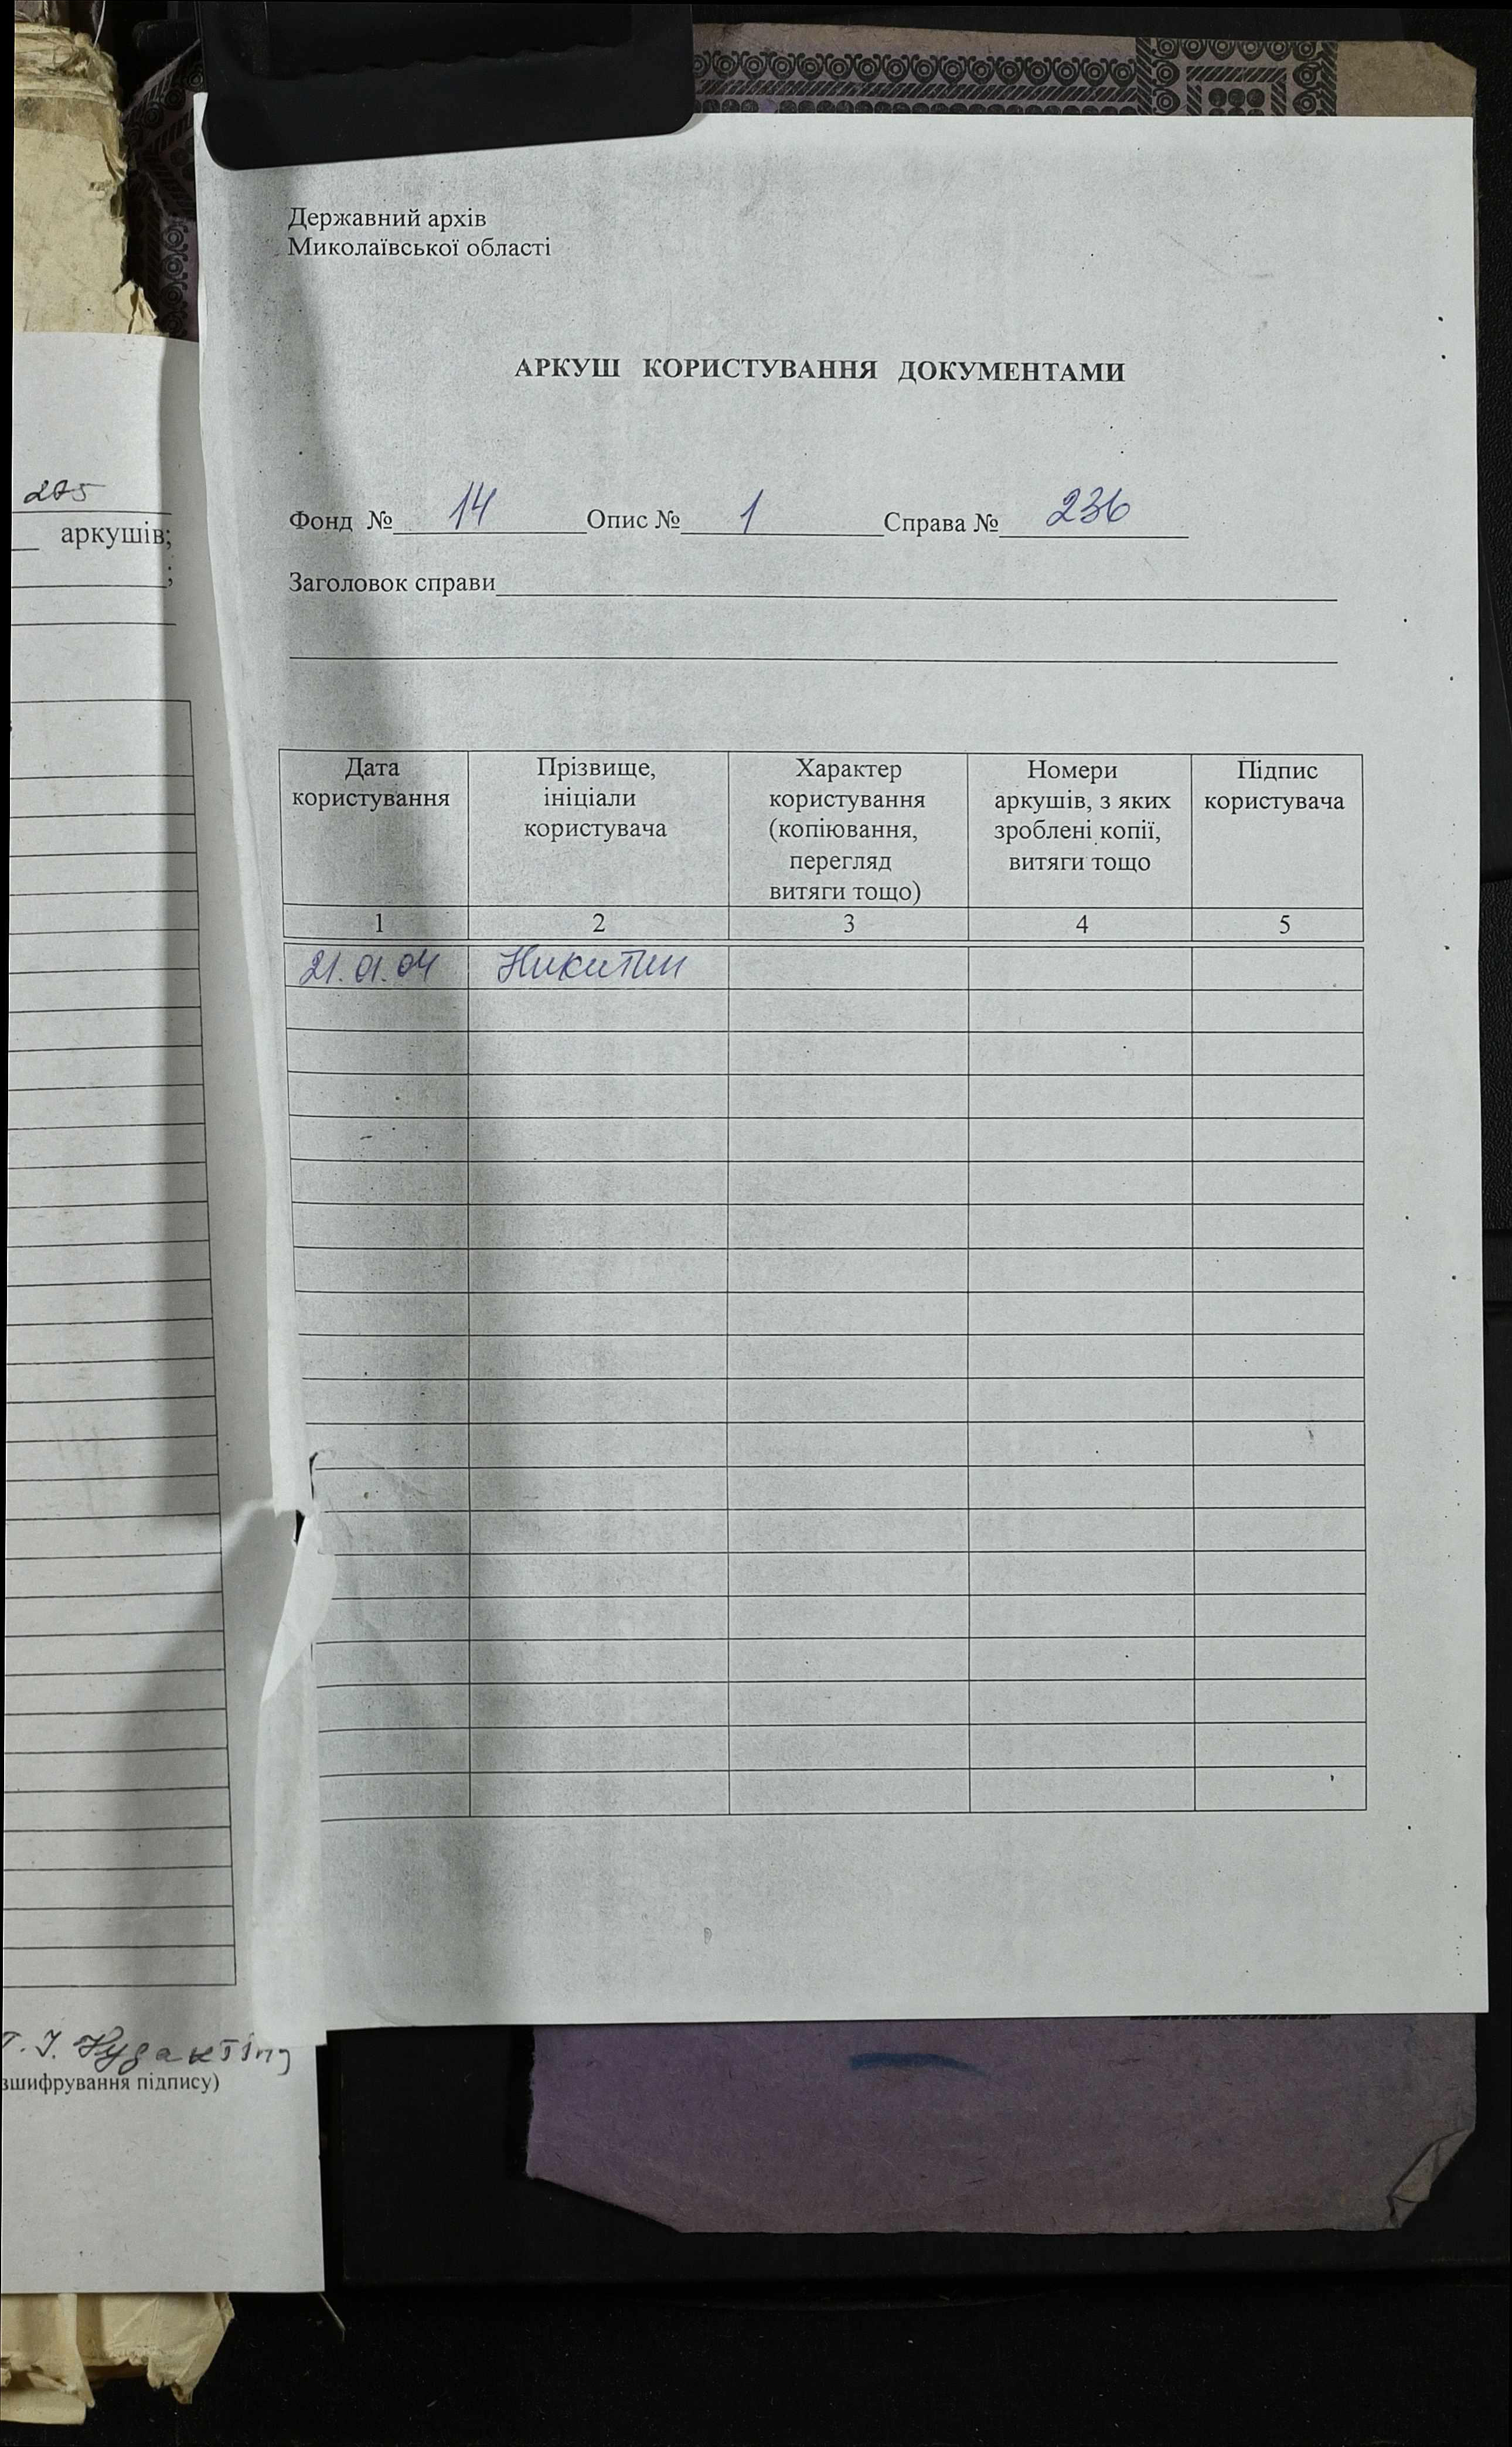 Державний архів
Миколаївської області
АРКУШ КОРИСТУВАННЯ ДОКУМЕНТАМИ
Фонд № 14 Опис № 1 Справа № 236
Заголовок справи
Дата користування
Прізвище, ініціали користувача
Характер користування (копіювання, перегляд витяги тощо)
Номери аркушів, з яких зроблені копії, витяги тощо
Підпис користувача
1 2 3 4 5
21.01.04 Никитин
275
аркушів;
;
зшифрування підпису)